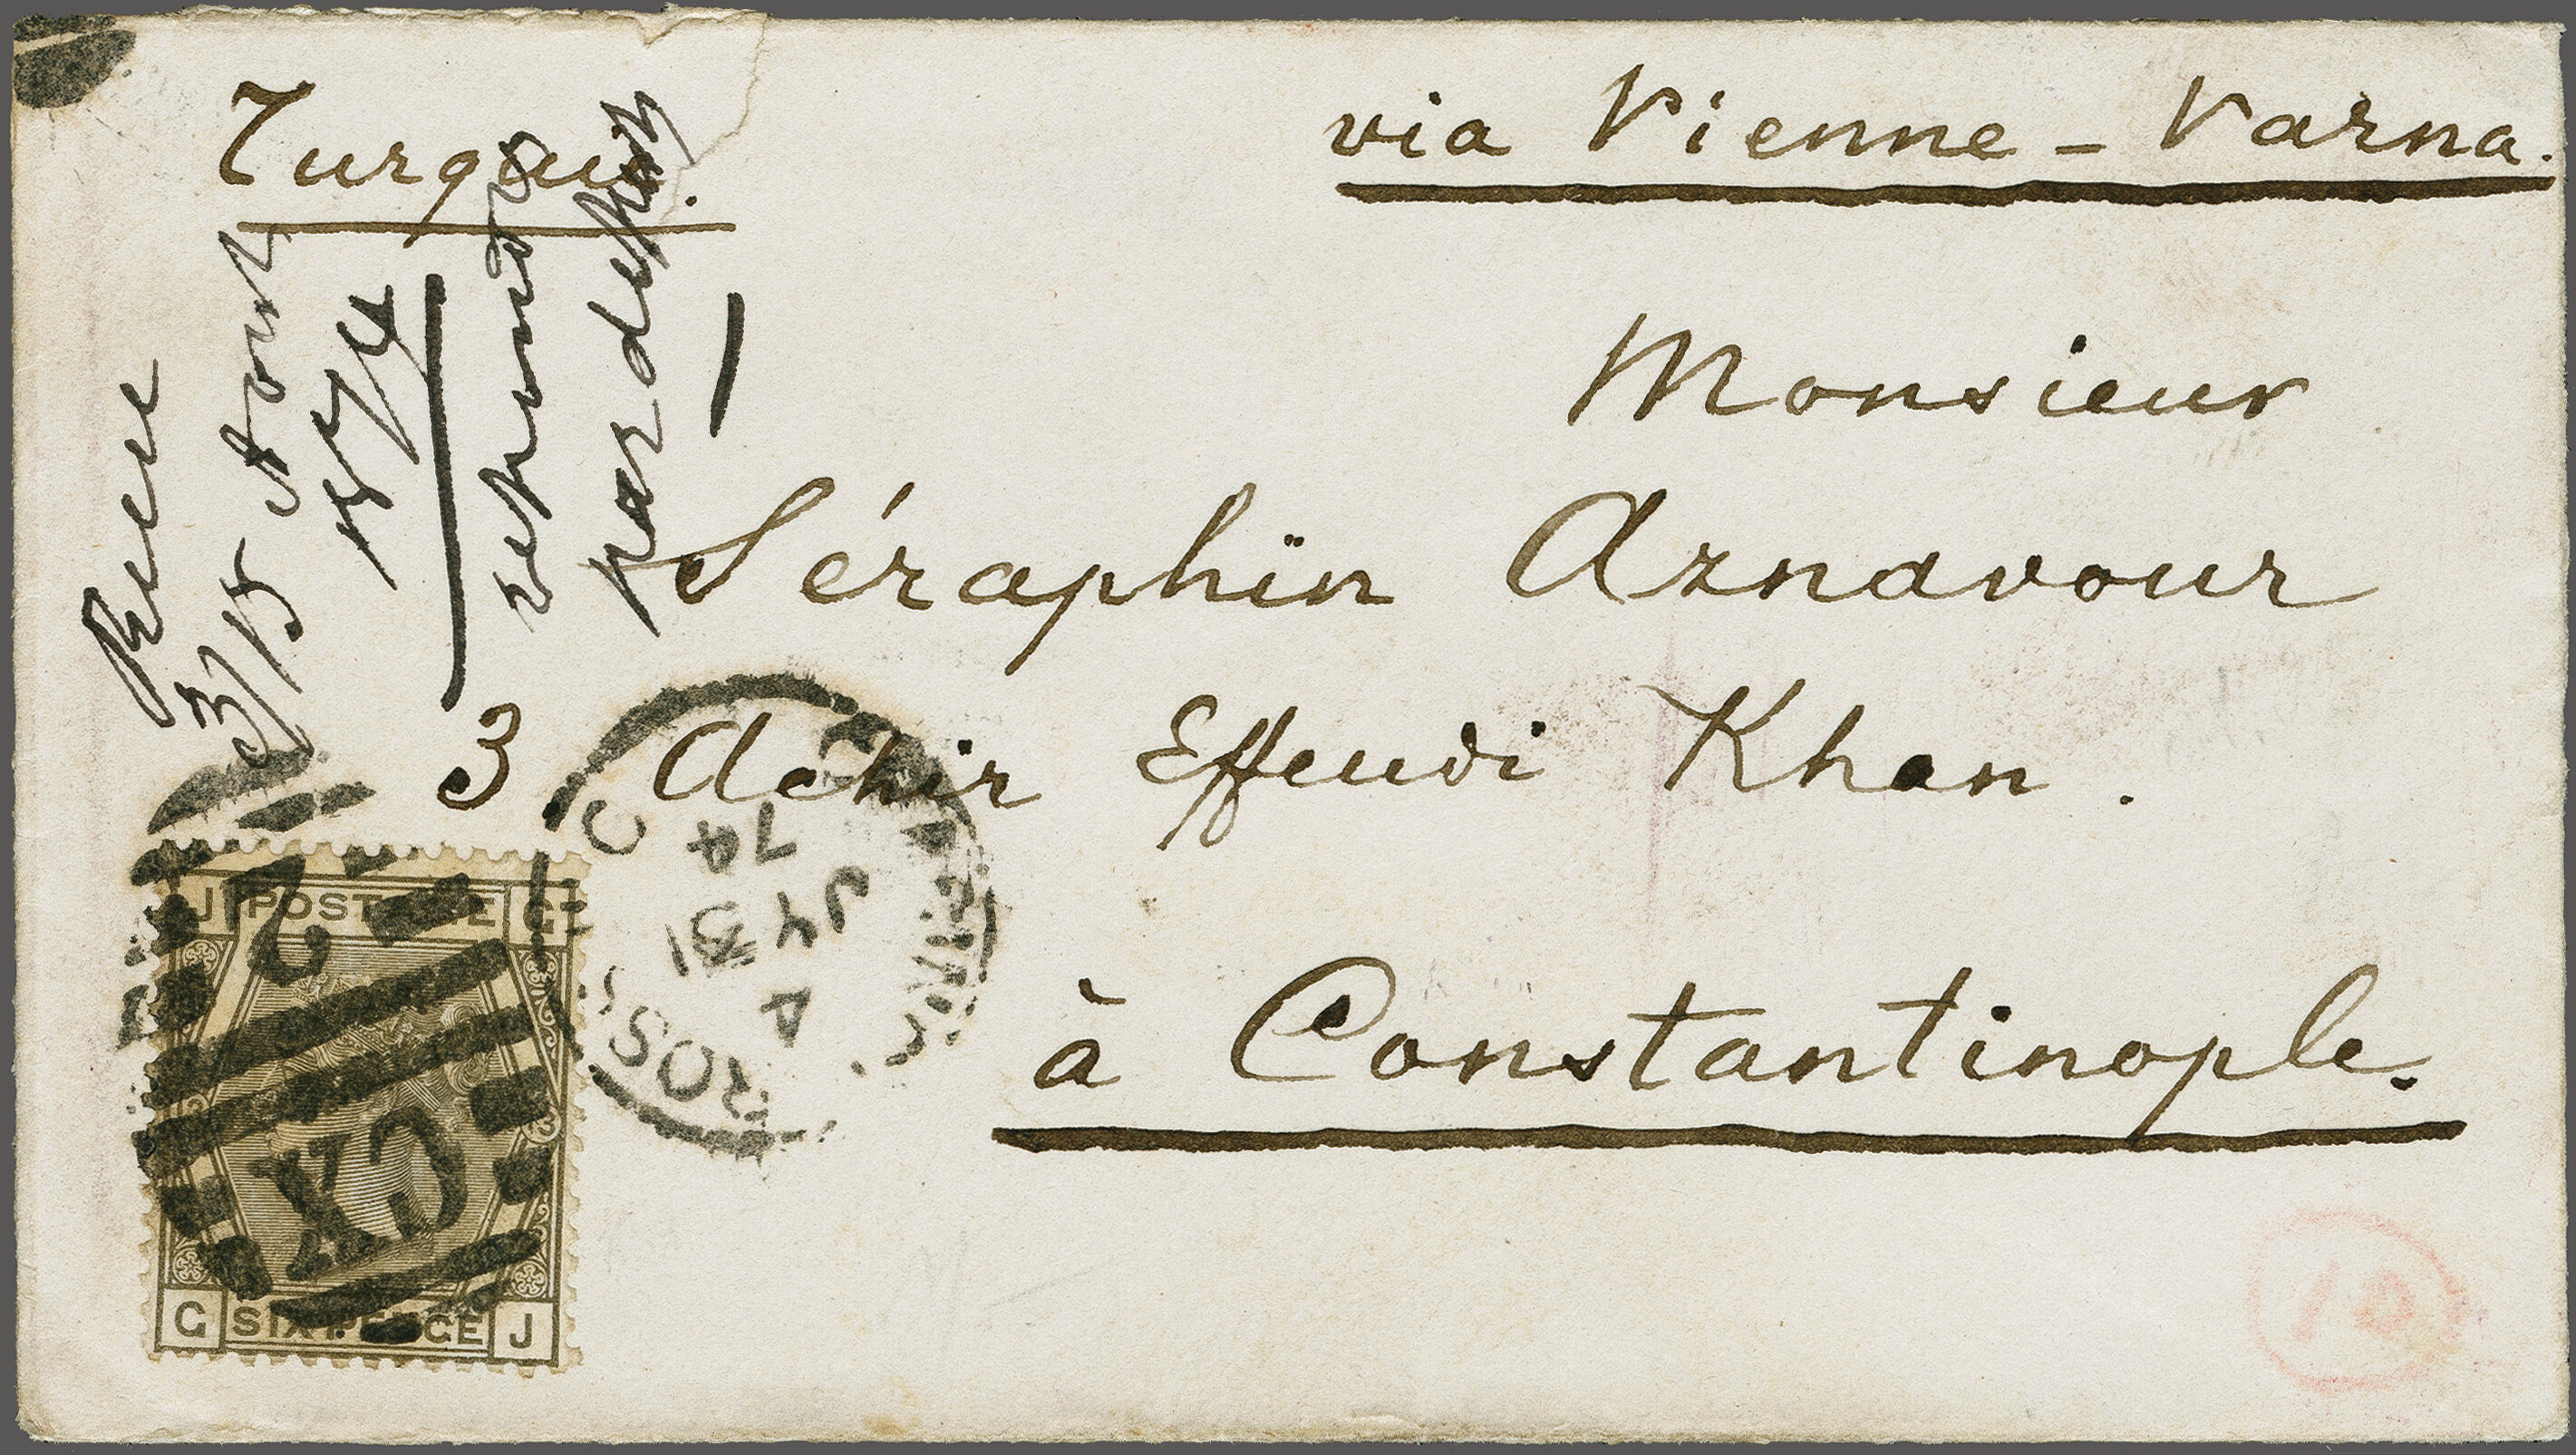 Turquie.
via Vienne - Varna.
Monsieur
Séraphin Aznavour
3 Achir Effendi Khan.
à Constantinople.
3/15 Aout
1874
par
C
74
JY 31
A
ROSS
J POSTAGE G
2
CX
G SIX PENCE J